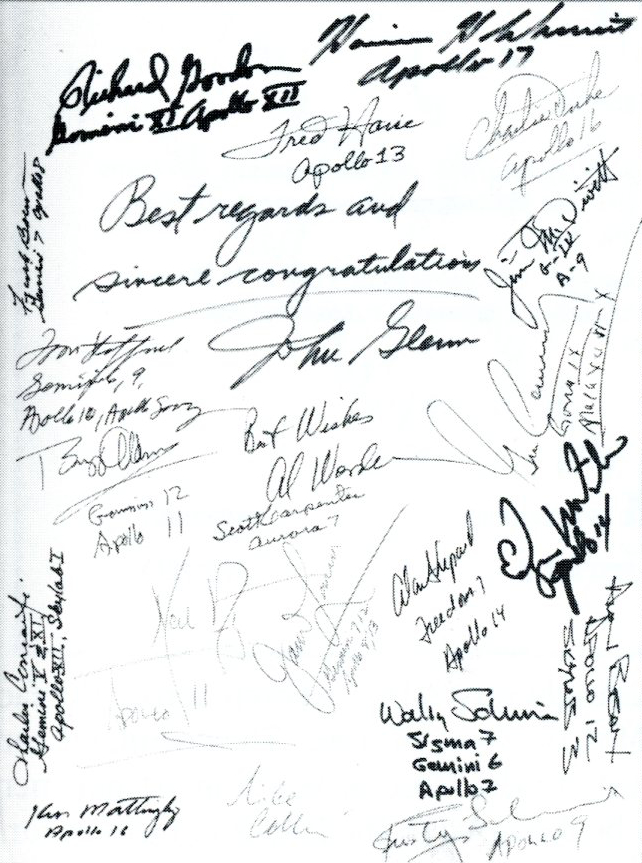 Harrison H Schmitt
Apollo 17
Richard Gordon
Gemini XI Apollo XII
Fred Haise
Apollo 13
Charlie Duke
Apollo 16
Best regards and
sincere congratulations
John Glenn
Frank Borman
Gemini 7 Apollo 8
Jim McDivitt
G-IV
A-9
Tom Stafford
Gemini 6, 9,
Apollo 10, Apollo Soyuz
Gene Cernan
Gemini IX
Apollo X
Buzz Aldrin
Gemini 12
Apollo 11
Best Wishes
Al Worden
Scott Carpenter
Aurora 7
Edgar Mitchell
Apollo 14
Neil
Apollo 11
James Lovell
Gemini 7, 12
Apollo 8, 13
Alan Shepard
Freedom 7
Apollo 14
Charles Conrad Jr.
Gemini V & XI
Apollo XII, Skylab I
Alan Bean
Apollo 12
Skylab 3
Wally Schirra
Sigma 7
Gemini 6
Apollo 7
Ken Mattingly
Apollo 16
Mike
Collins
Rusty Schweickart
Apollo 9